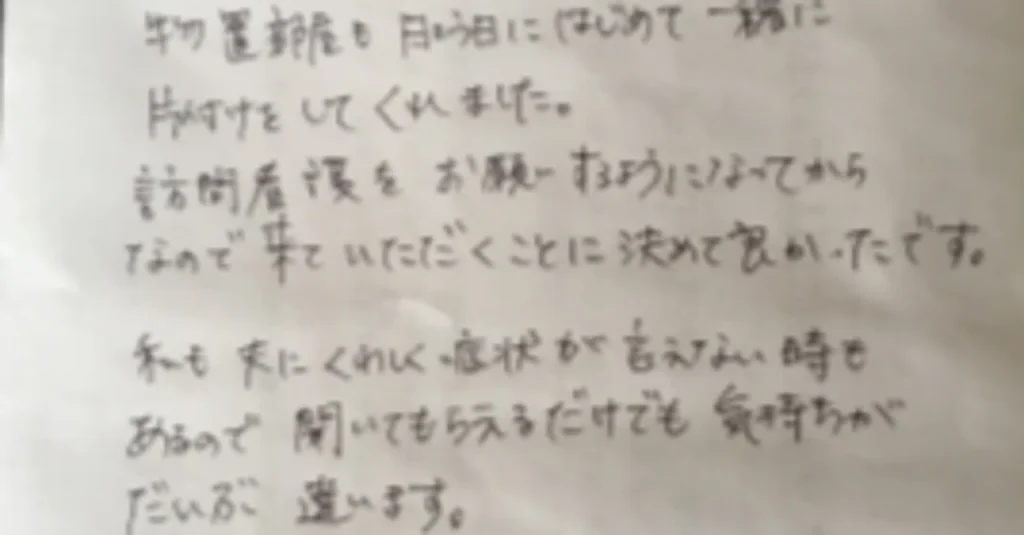 物置部屋も日よう日にはじめて一緒に
片付けをしてくれました。
訪問看護をお願いするようになってから
なので来ていただくことに決めて良かったです。
私も夫にくわしく症状が言えない時も
あるので聞いてもらえるだけでも気持ちが
だいぶ違います。